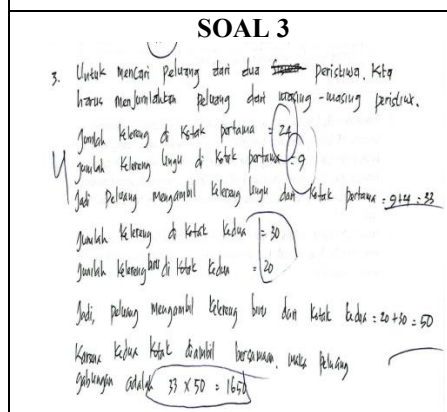 SOAL 3
3. Untuk mencari Peluang dari dua peristiwa, kita
harus menjumlahkan peluang dari masing-masing peristiwa.
Jumlah kelereng di kotak pertama = 24
4
Jumlah kelereng ungu di kotak pertama = 9
Jadi Peluang mengambil kelereng ungu dari kotak pertama = 9+24 = 33
Jumlah kelereng di kotak kedua = 30
Jumlah kelereng biru di kotak kedua = 20
Jadi, peluang mengambil kelereng biru dari kotak kedua = 20+30 = 50
Karena kedua kotak diambil bersamaan, maka peluang
gabungan adalah 33 x 50 = 1650